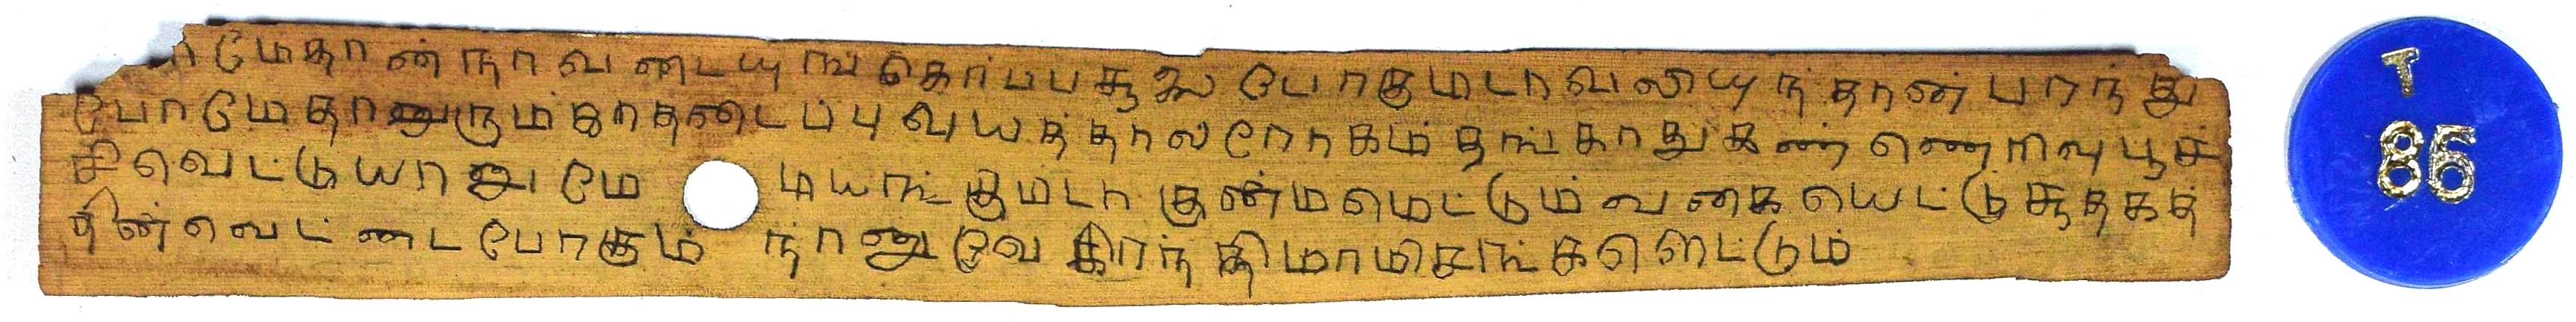 ாமேதான் நாவடைையுங் கெர்ப்பசூலை போகுமடா வலியுந் தான் பரந்து
போமேதானுரும் காதடைப்பு வுயத்தால ரோகம் தங்காது கண்ணெரிவு பூச்
சிவெட்டுயானுமே மயாங்குமடா குன்மமெட்டும் வகையெட்டு சூதகத்
தின்வெட்டை போகும் நானுவே கிரந்திமாமிசங்களெட்டும்
T
86